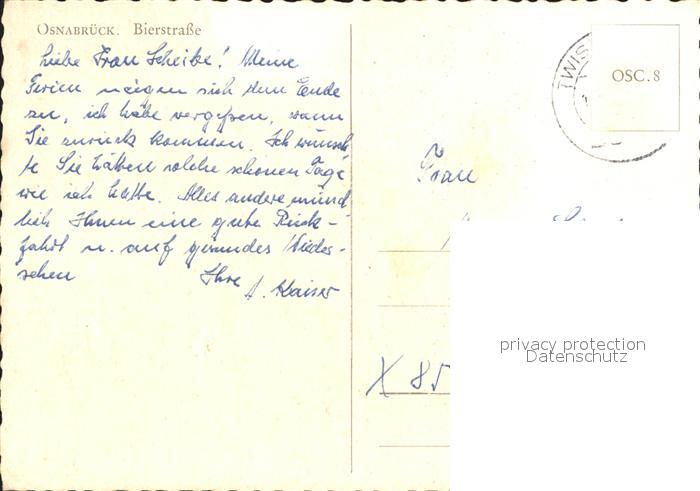 OSNABRÜCK. Bierstraße
Liebe Frau Scheibe! Meine
Ferien neigen sich dem Ende
zu, ich habe vergessen, wann
Sie zurück kommen. Ich wünsch
te Sie hätten solche schönen Tage
wie ich hatte. Alles andere münd-
lich Ihnen eine gute Rück-
fahrt u. auf gesundes Wieder-
sehen Ihre
A. Kaiser
TWIS
OSC. 8
Frau
X 85
privacy protection
Datenschutz